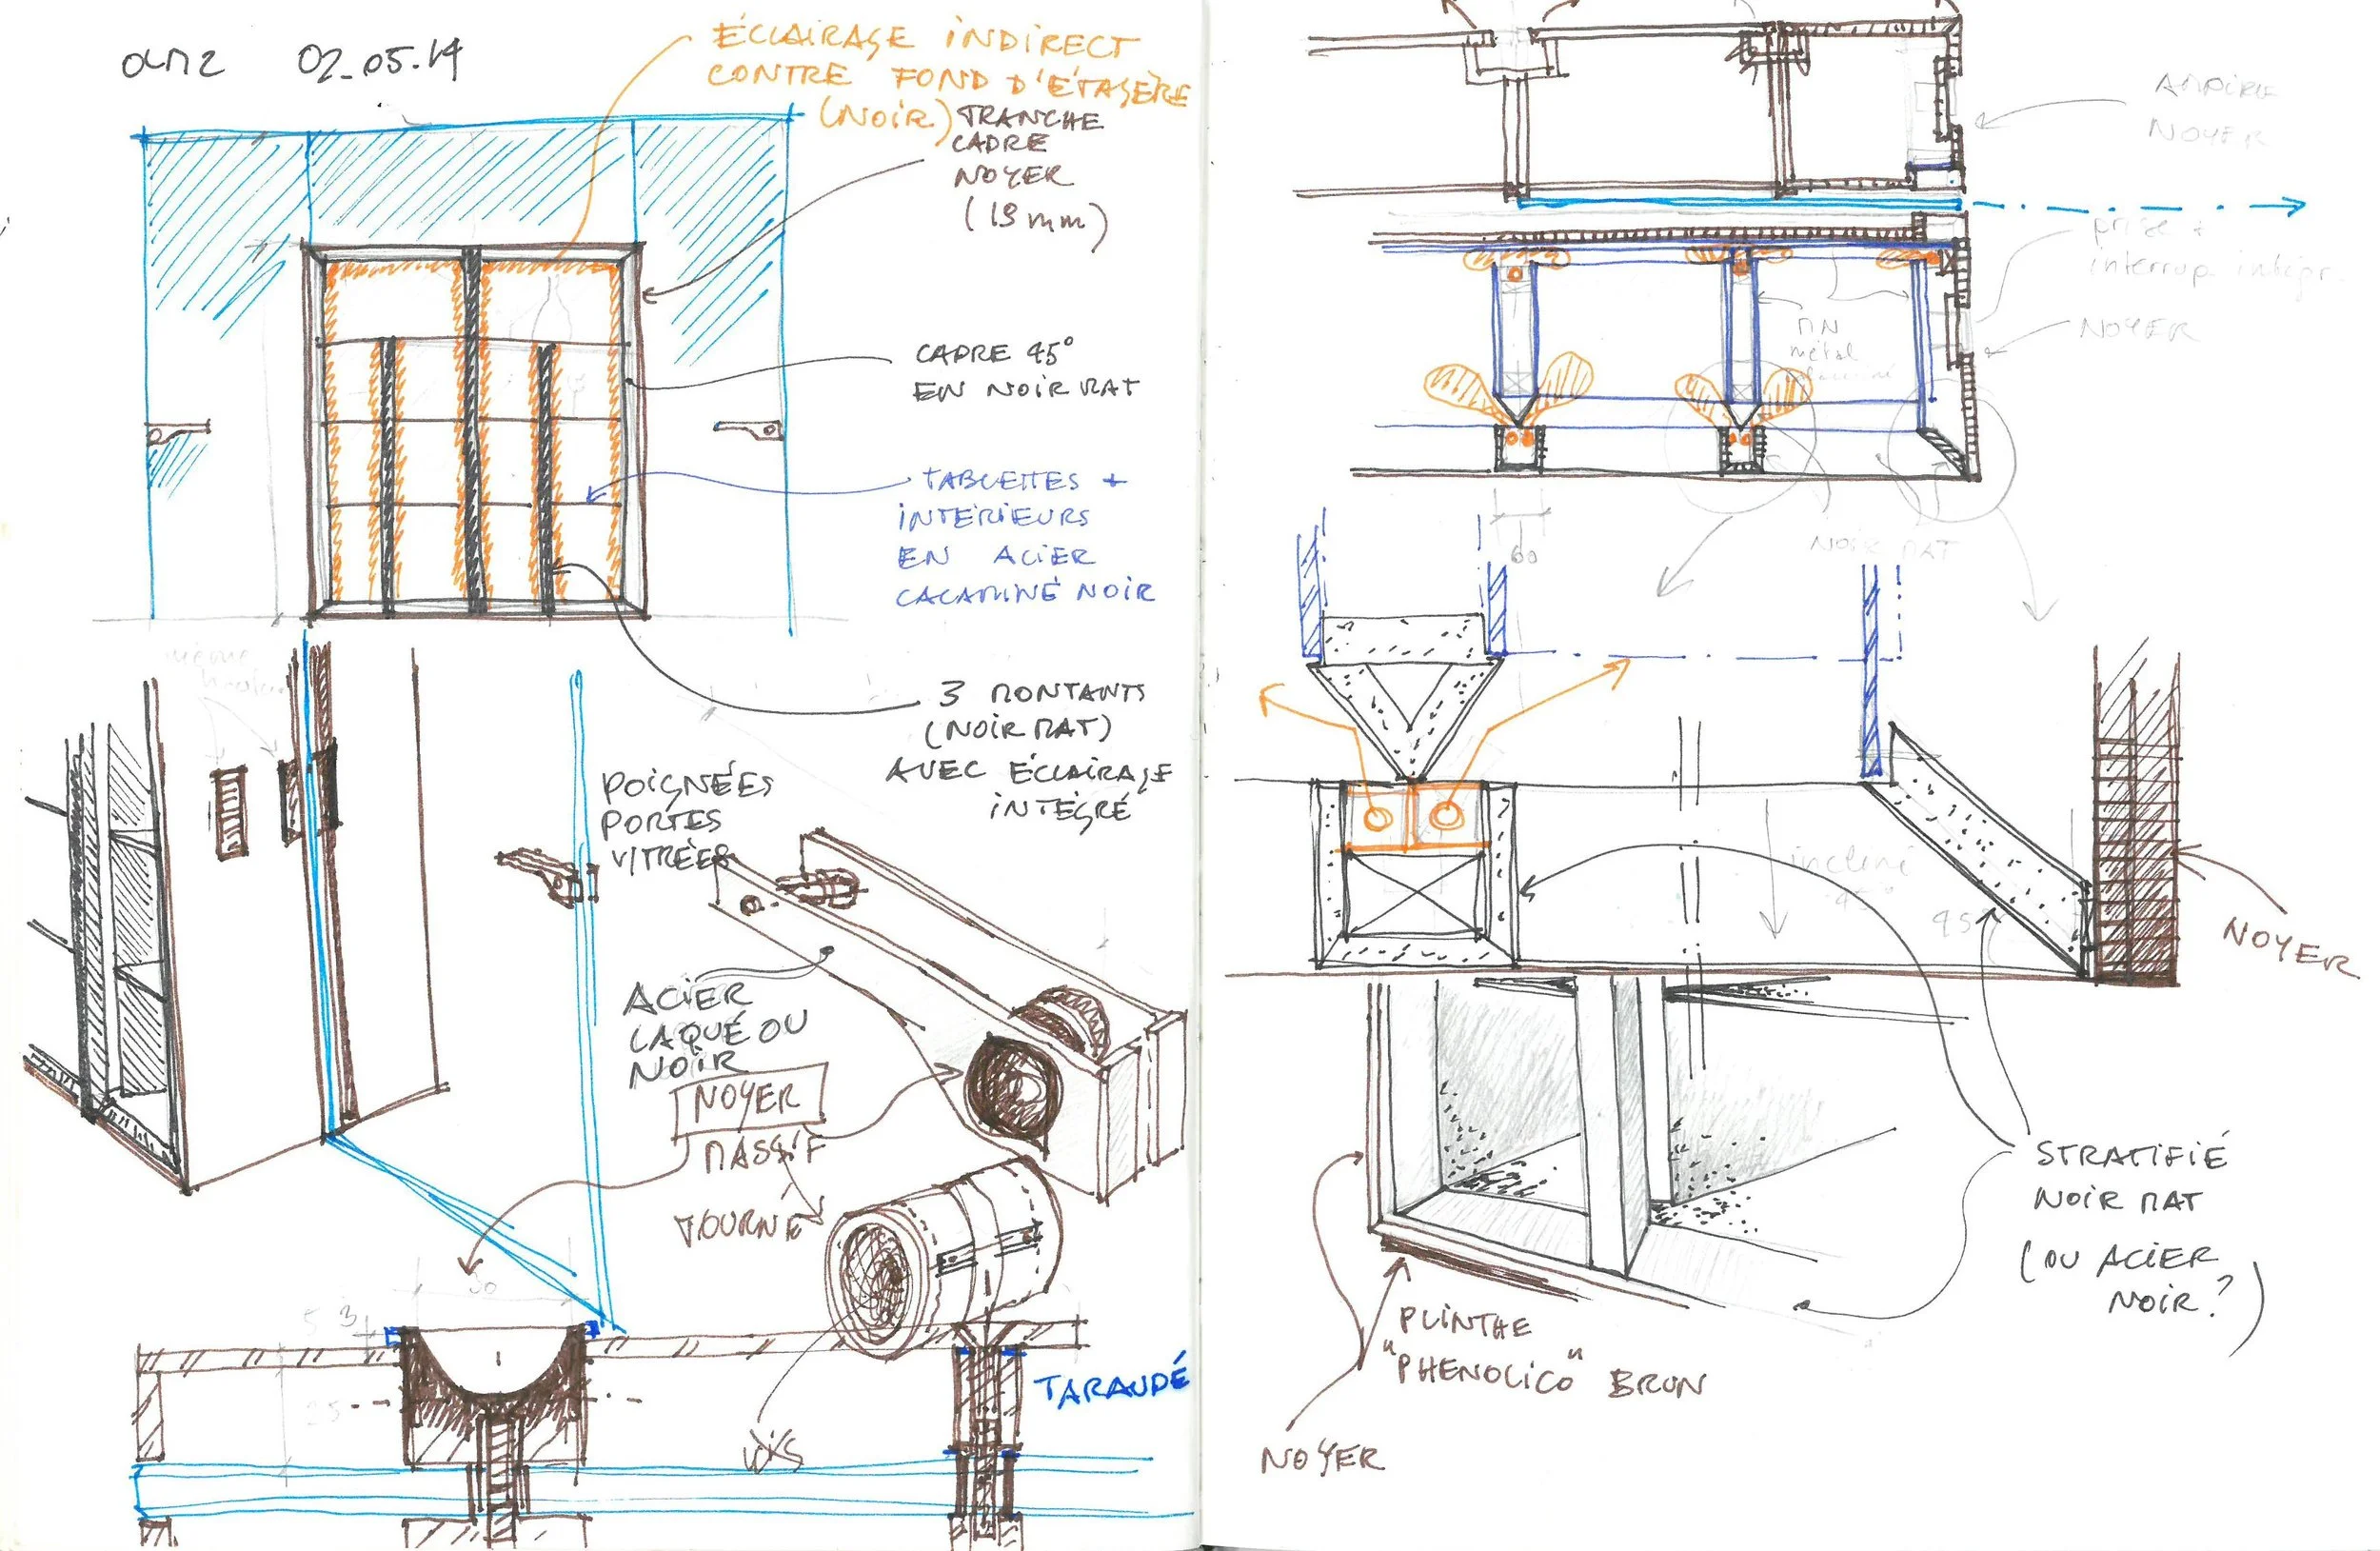 02.05.14
ÉCLAIRAGE INDIRECT
CONTRE FOND D'ÉTAGÈRE
(NOIR)
TRANCHE
CADRE
NOYER
(19 mm)
CADRE 45°
EN NOIR MAT
TABLETTES +
INTERIEURS
EN ACIER
CACAMINÉ NOIR
3 MONTANTS
(NOIR MAT)
AVEC ÉCLAIRAGE
INTÉGRÉ
POIGNÉES
PORTES
VITRÉES
ACIER
LAQUÉ OU
NOIR
NOYER
MASSIF
TOURNÉ
50
5
3
25
VIS
TARAUDÉ
NOYER
prise +
interrup. intégr.
NOYER
métal
60
NOIR MAT
incliné
45°
45°
NOYER
STRATIFIÉ
NOIR MAT
(OU ACIER
NOIR?)
PLINTHE
"PHENOLICO" BRUN
NOYER